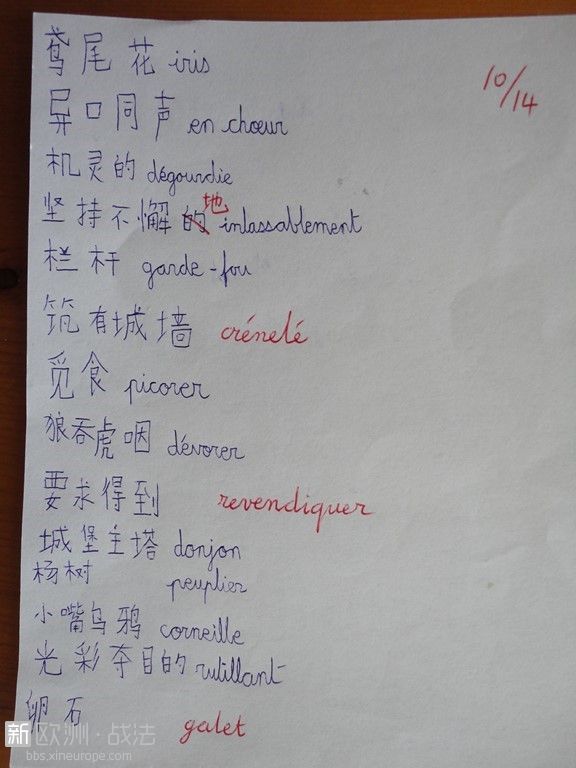 鸢尾花 iris
10/14
异口同声 en chœur
机灵的 dégourdie
坚持不懈的地 inlassablement
栏杆 garde-fou
筑有城墙 crénelé
觅食 picorer
狼吞虎咽 dévorer
要求得到 revendiquer
城堡主塔 donjon
杨树 peuplier
小嘴乌鸦 corneille
光彩夺目的 rutillant
卵石 galet
新欧洲·战法
bbs.xineurope.com